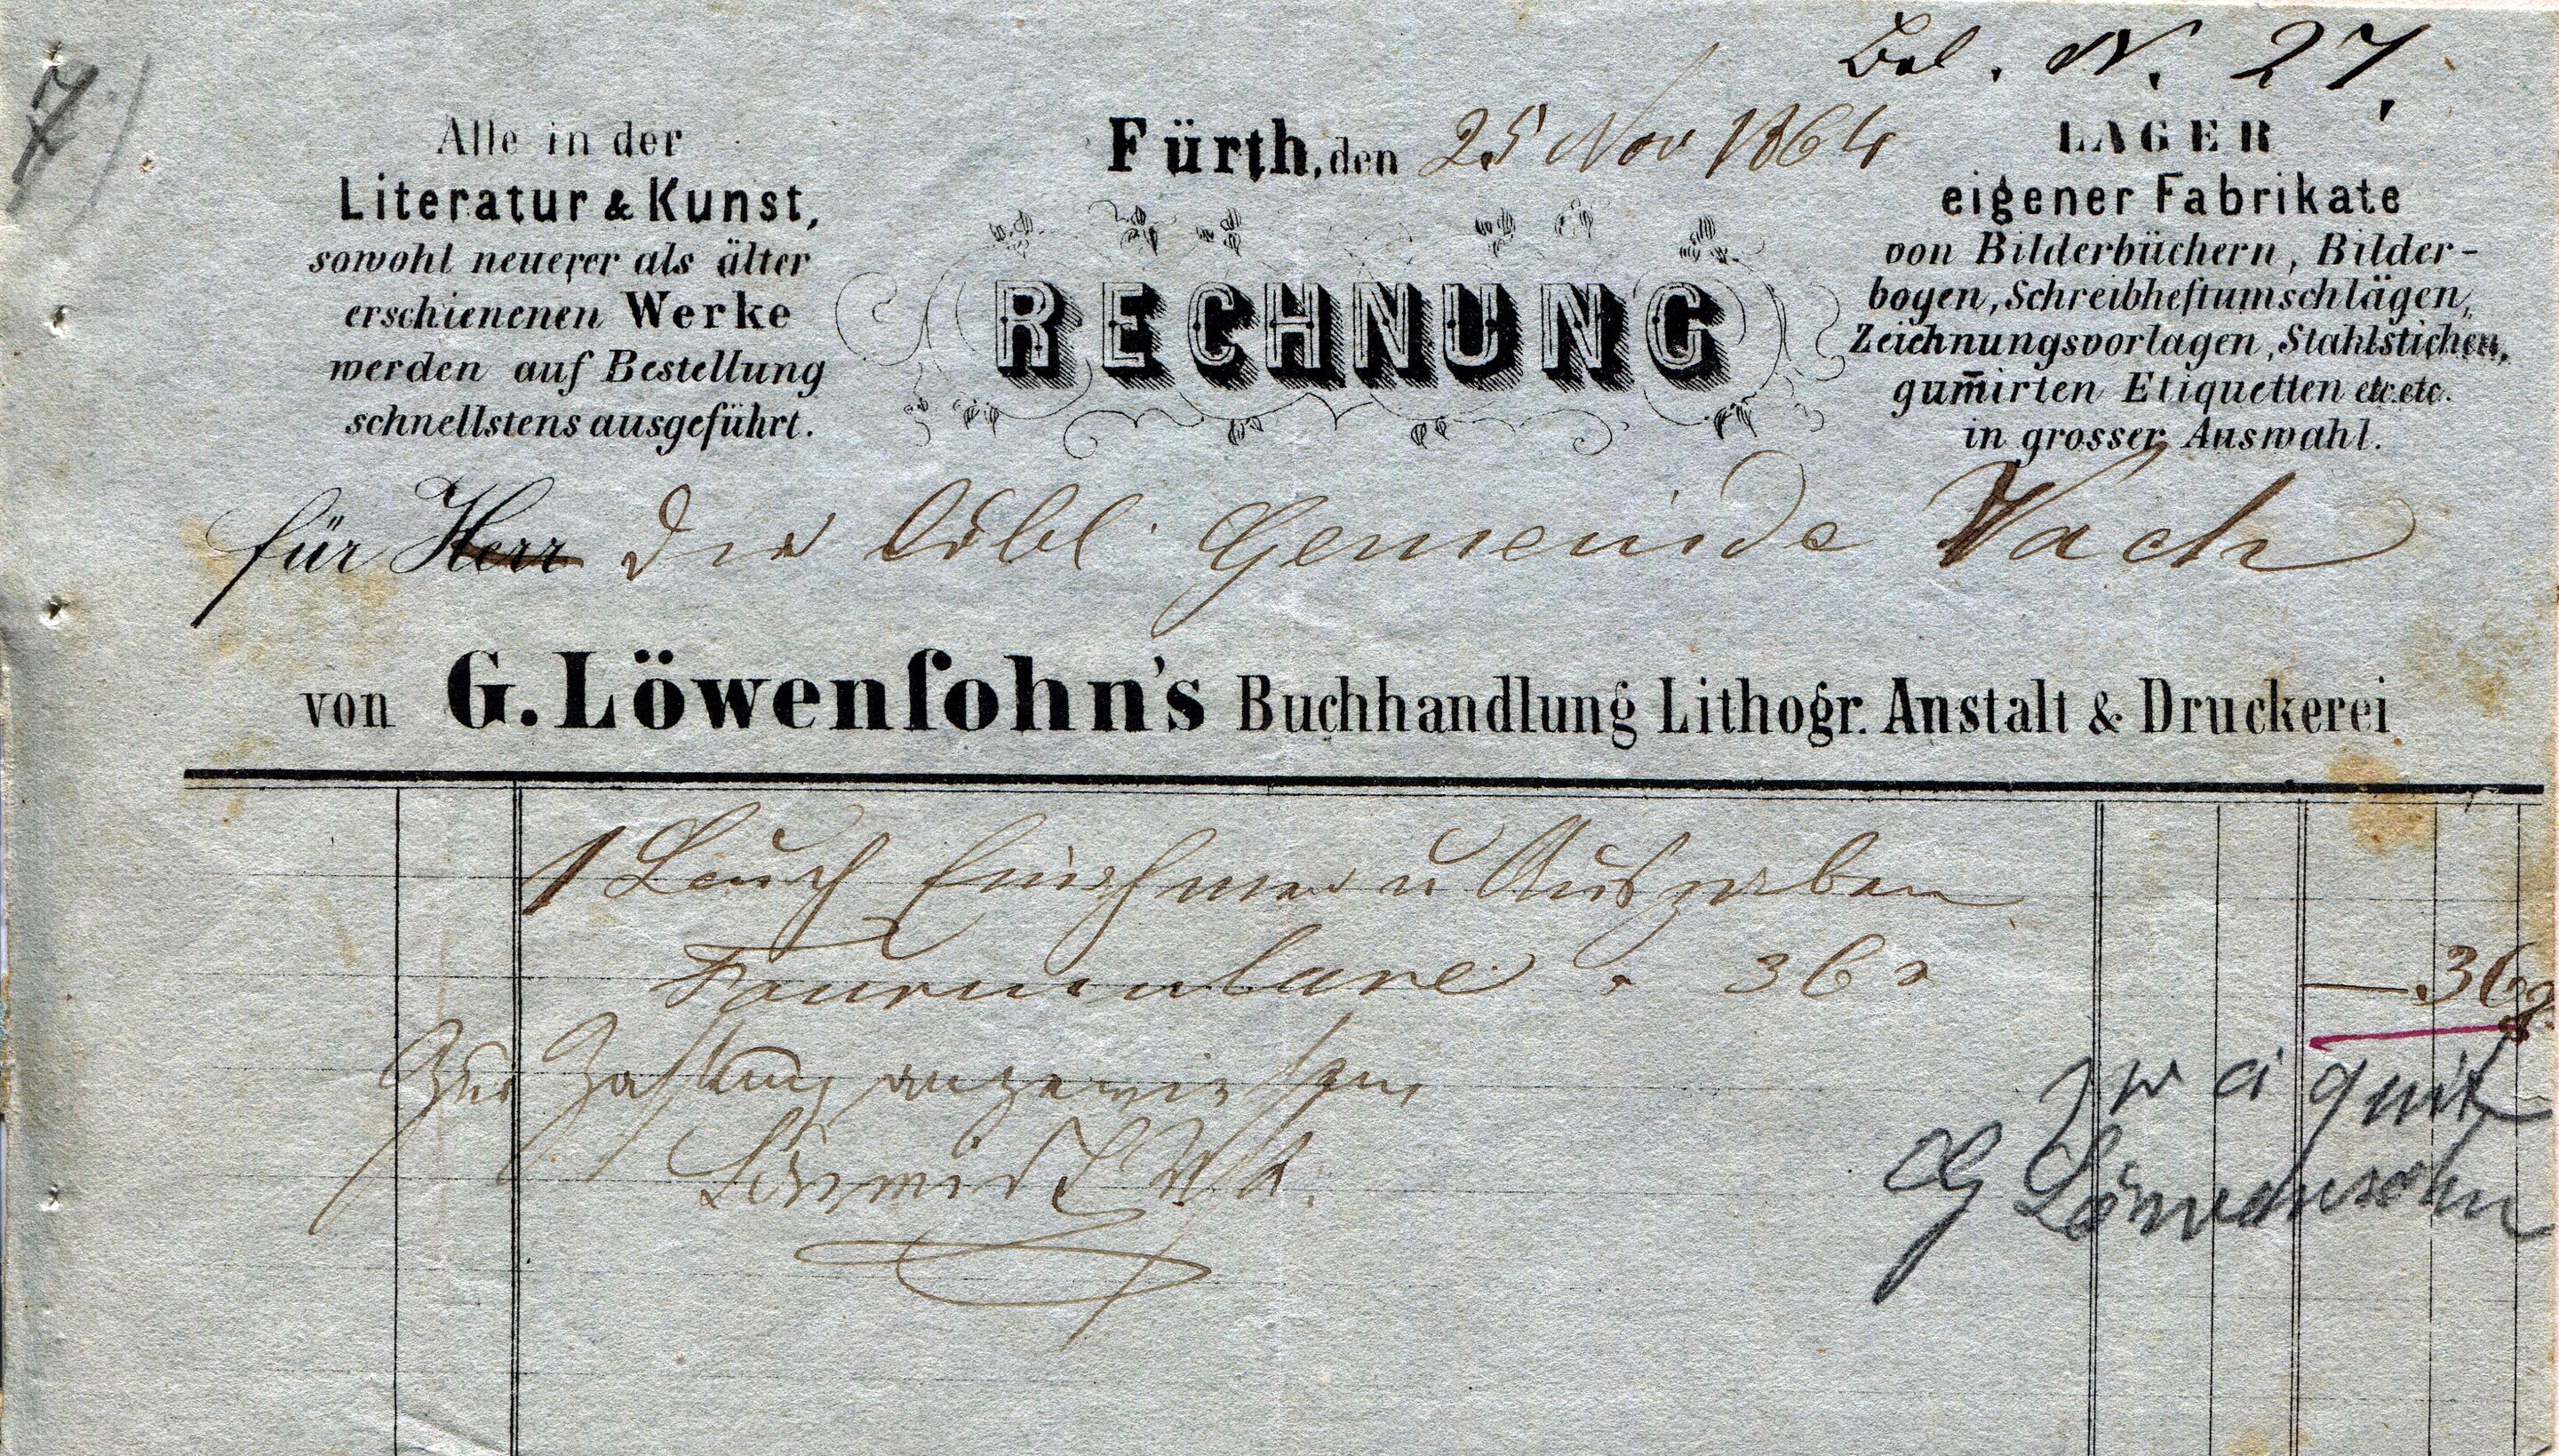 Bel. N. 27.
7.)
Alle in der
Literatur & Kunst,
sowohl neuerer als älter
erschienenen Werke
werden auf Bestellung
schnellstens ausgeführt.
Fürth, den 25 Nov 1864
RECHNUNG
LAGER
eigener Fabrikate
von Bilderbüchern, Bilder-
bogen, Schreibheftumschlägen,
Zeichnungsvorlagen, Stahlstichen,
gum̄irten Etiquetten etc. etc.
in grosser Auswahl.
für Herr die löbl. Gemeinde Vach
von G. Löwenſohn's Buchhandlung Lithogr. Anstalt & Druckerei
1 Buch Einnahme u Ausgaben
Formulare 36
— 36
Zur Zahlung angewiesen
quit
G Löwensohn